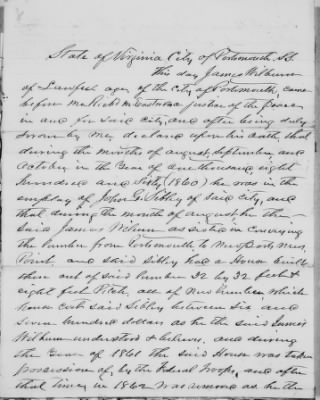 State of Virginia City of Portsmouth, SS.
This day James Wilburn
of Lawful age, of the City of Portsmouth, came
before me Rich'd M. a Justice of the Peace
in and for said City, and after being duly
sworn by me, declare upon his oath, that
during the months of August, September and
October in the Year of one thousand eight
hundred and Sixty (1860) he was in the
employ of John G. Sibley of said City, and
that during the month of August he the
said James Wilburn assisted in conveying
the lumber from Portsmouth to Newports News
Point, and said Sibley had a House built
there out of said lumber 32 by 32 feet &
eight feet Pitch, all of New lumber, which
house cost said Sibley between Six and
Seven hundred dollars as he the said James
Wilburn understood & believes, and during
the Year of 1861 the said House was taken
possession of, by the Federal Troops, and after
that time, in 1862 was removed as he the